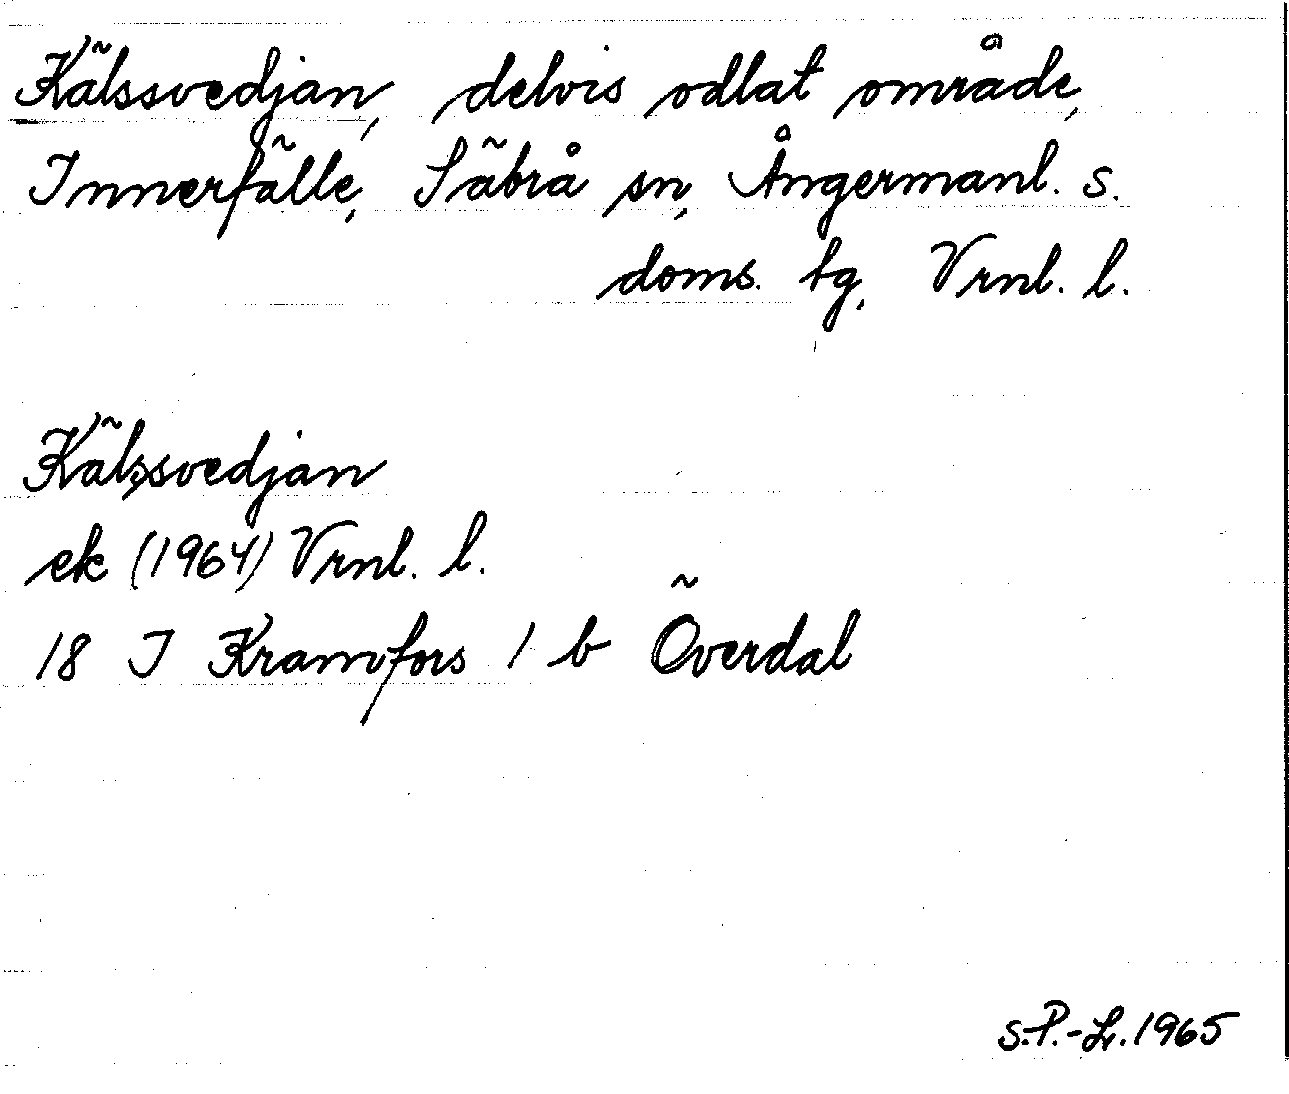 Kälssvedjan, delvis odlat område,
Innerfälle, Säbrå sn, Ångermanl. s.
doms. tg, Vrnl. l.
Kälssvedjan
ek (1964) Vrnl. l.
18 I Kramfors 1 b Överdal
S.P.-Lr. 1965